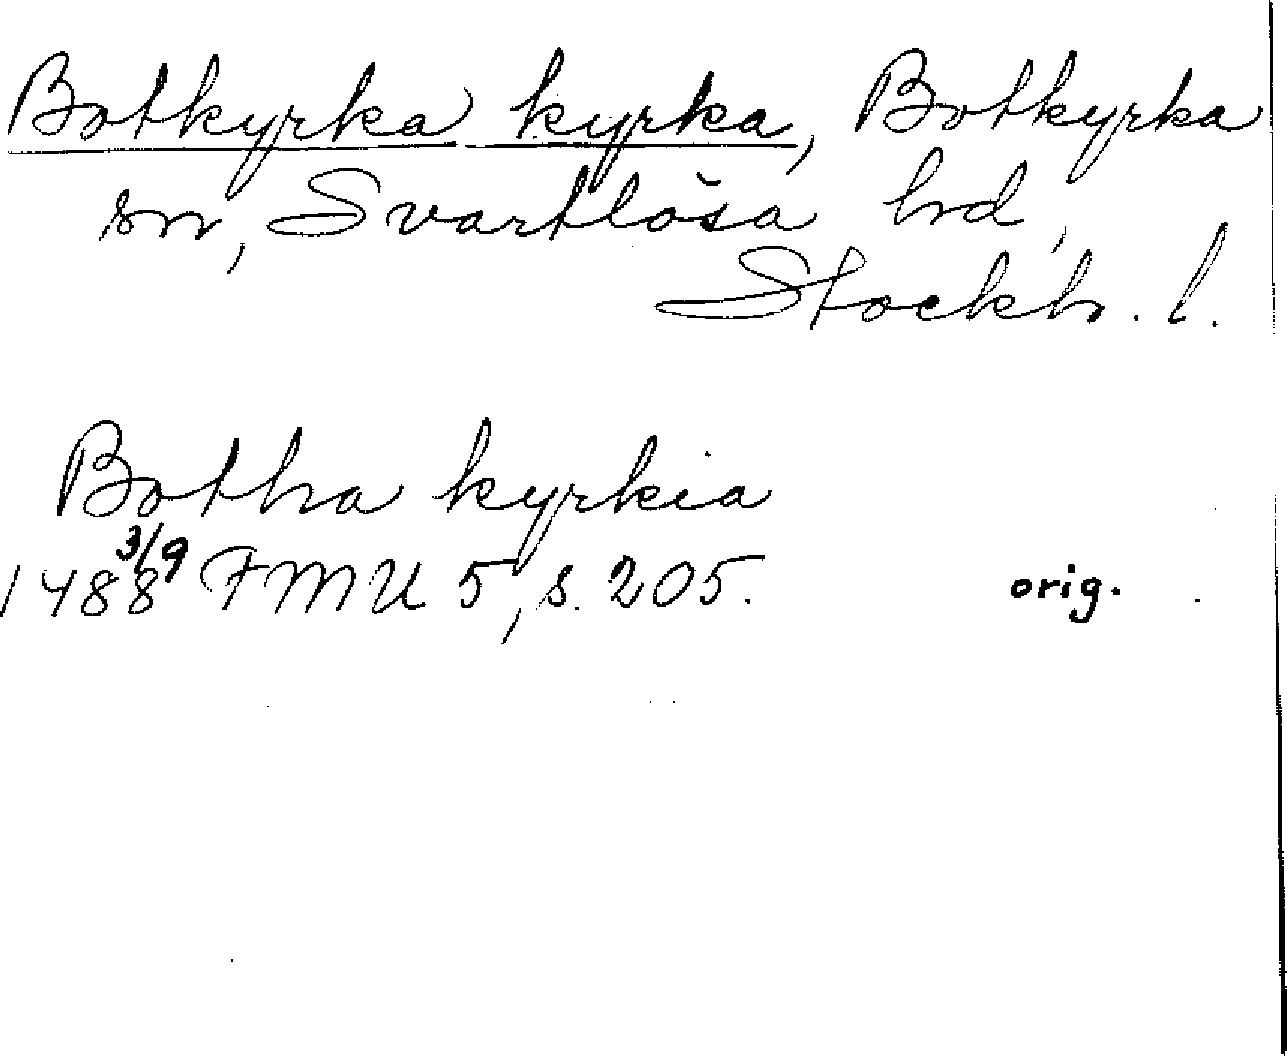 Botkyrka kyrka, Botkyrka
sn, Svartlösa hd,
Stockh. l.
Botha kyrkia
1488 3/9 FMU 5, s. 205. orig.